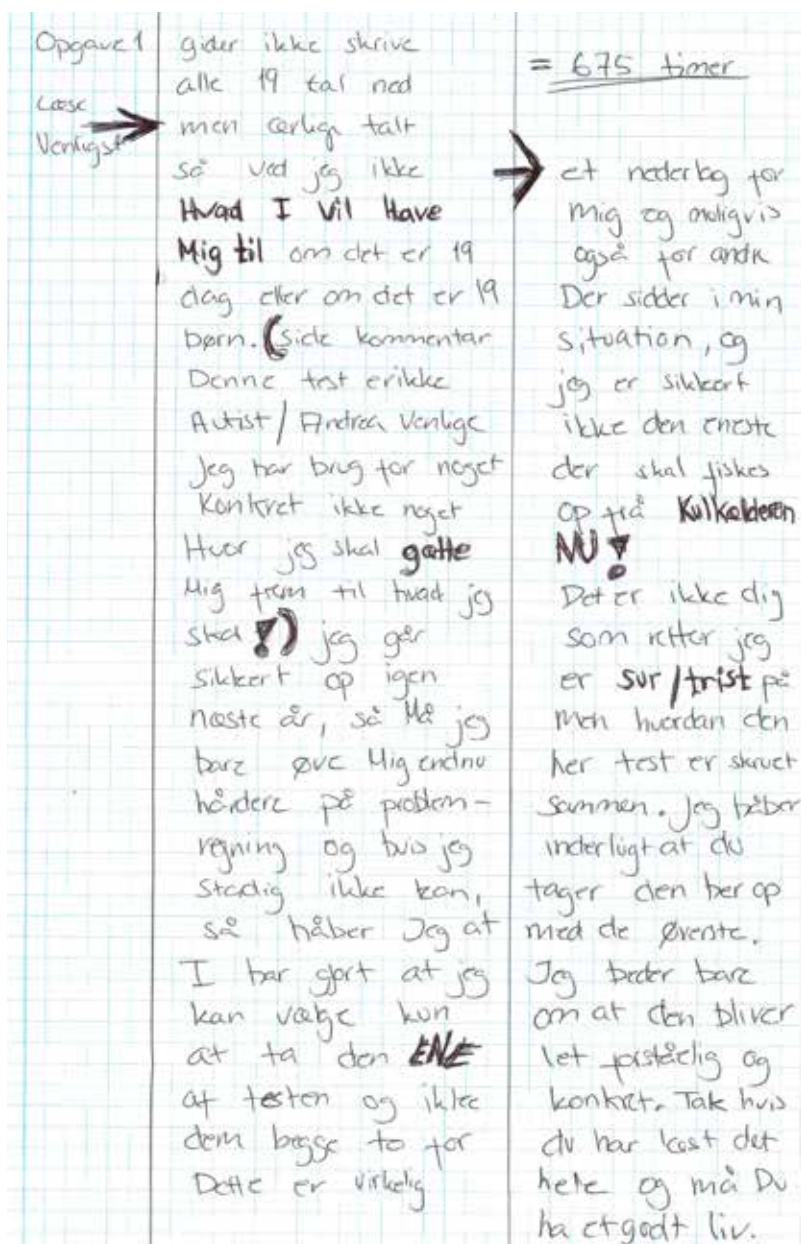 Opgave 1
Læse
Venligst
gider ikke skrive
alle 19 tal ned
men ærlig talt
så ved jeg ikke
Hvad I Vil Have
Mig til om det er 19
dag eller om det er 19
børn. (Side kommentar
Denne test er ikke
Autist / Andrea Venlige
Jeg har brug for noget
Konkret ikke noget
Hvor jeg skal gætte
Mig frem til hvad jeg
skal !) jeg går
sikkert op igen
næste år, så Må jeg
bare øve Mig endnu
hårdere på problem-
regning og hvis jeg
stadig ikke kan,
så håber Jeg at
I har gjort at jeg
kan vælge kun
at ta den ENE
af testen og ikke
dem begge to for
Dette er virkelig
= 675 timer
et nederlag for
mig og muligvis
også for andre
Der sidder i min
situation, og
jeg er sikkert
ikke den eneste
der skal fiskes
op fra Kulkælderen
NU !
Det er ikke dig
som retter jeg
er sur / trist på
men hvordan den
her test er skruet
sammen. Jeg håber
inderligt at du
tager den her op
med de øverste.
Jeg beder bare
om at den bliver
let forståelig og
konkret. Tak hvis
du har læst det
hele og må Du
ha et godt liv.